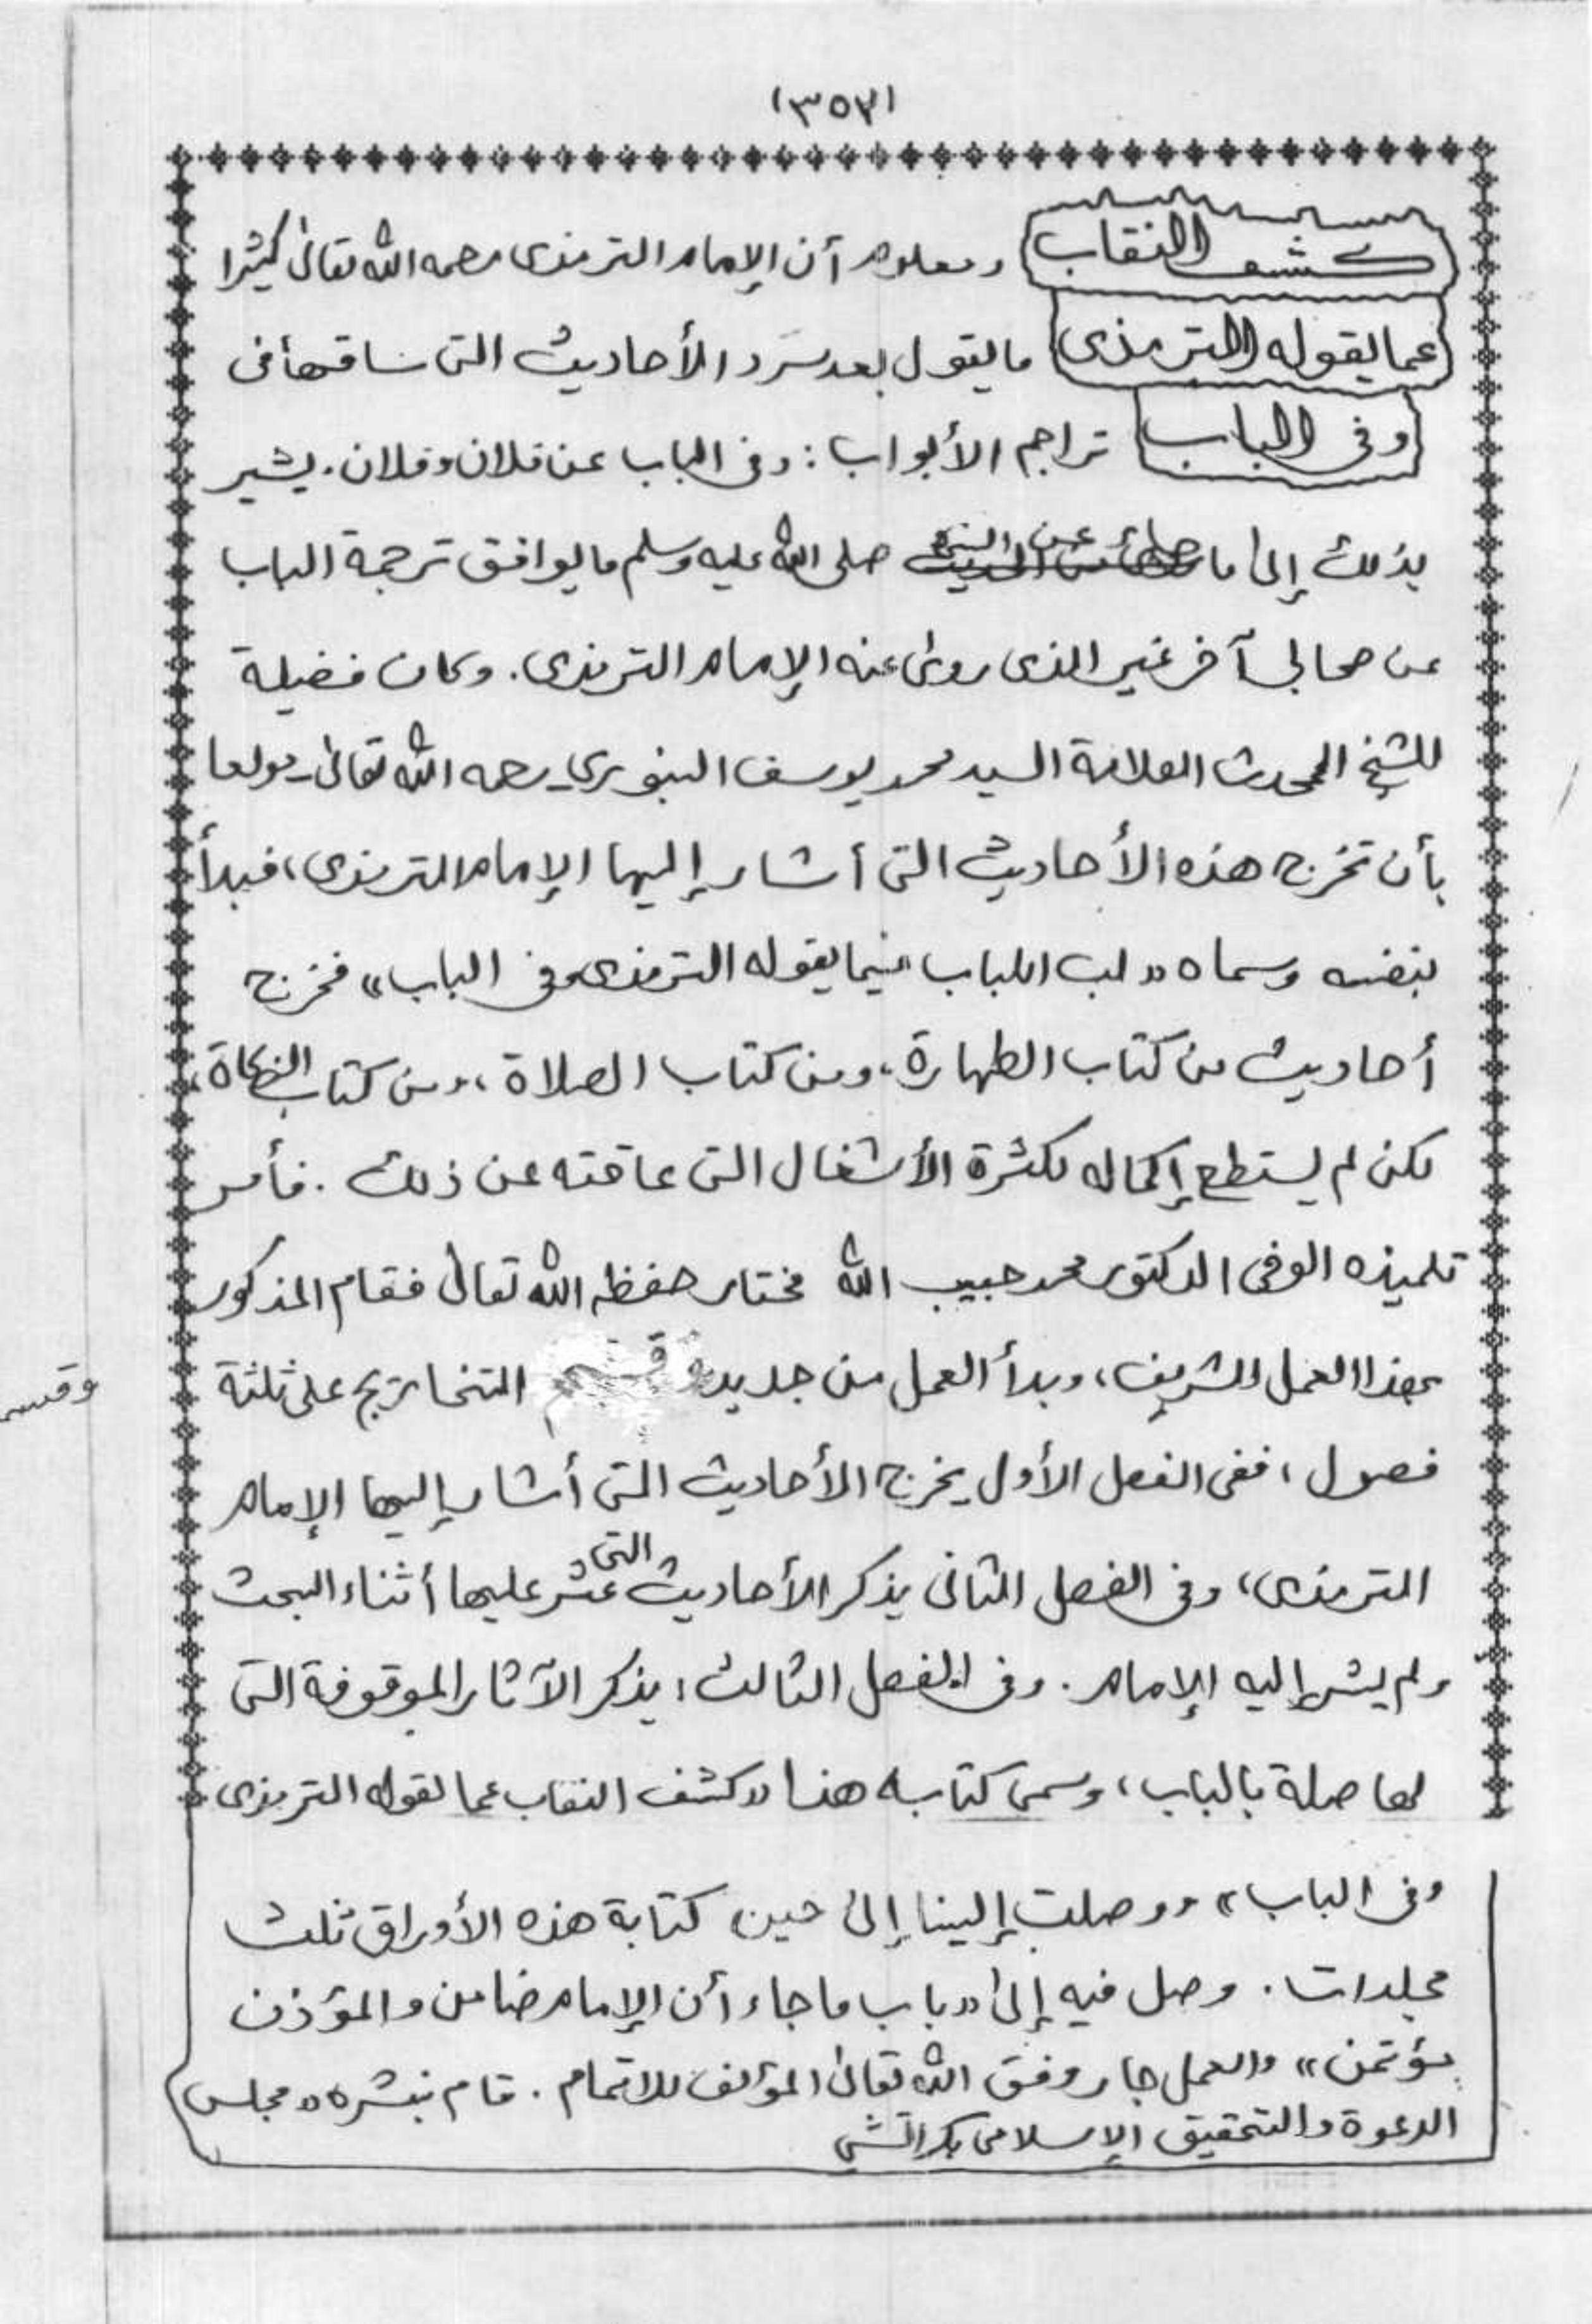 (٣٥٧)
كشف النقاب ومعلوم أن الإمام الترمذى رحمه الله تعالىٰ كثيرا
عما يقوله الترمذى ما يقول بعد سرد الأحاديث التى ساقها فى
وفى الباب تراجم الأبواب : وفى الباب عن فلان وفلان. يشير
بذلك إلى ما جاء عن النبى صلى الله عليه وسلم ما يوافق ترجمة الباب
عن صحابى آخر غير الذى روىٰ عنه الإمام الترمذى. وكان فضيلة
للشيخ المحدث العلامة السيد محمد يوسف البنوري رحمه الله تعالىٰ - مولعا
بأن تخرج هذه الأحاديث التى أشار إليها الإمام الترمذى، فبدأ
بنفسه وسماه «لب اللباب فيما يقوله الترمذى وفى الباب» فخرج
أحاديث من كتاب الطهارة، ومن كتاب الصلاة، ومن كتاب الزكاة،
لكن لم يستطع إكماله لكثرة الأشغال التى عاقته عن ذلك . فأمر
تلميذه الوفى الدكتور محمد حبيب الله مختار حفظه الله تعالىٰ فقام المذكور
بهذا العمل الشريف، وبدأ العمل من جديد وقسم التخاريج على ثلثة
وقسم
فصول، ففى الفصل الأول يخرج الأحاديث التى أشار إليها الإمام
الترمذى، وفى الفصل الثانى يذكر الأحاديث التى عثر عليها أثناء البحث
ولم يشر إليه الإمام. وفى الفصل الثالث، يذكر الآثار الموقوفة التى
لها صلة بالباب، وسمى كتابه هذا «كشف النقاب عما يقوله الترمذى
وفى الباب» ووصلت إلينا إلىٰ حين كتابة هذه الأوراق ثلث
مجلدات. وصل فيه إلىٰ «باب ما جاء أن الإمام ضامن والمؤذن
مؤتمن» والعمل جار وفق الله تعالىٰ المؤلف للاتمام. قام بنشره «مجلس
الدعوة والتحقيق الإسلامى بكراتشى